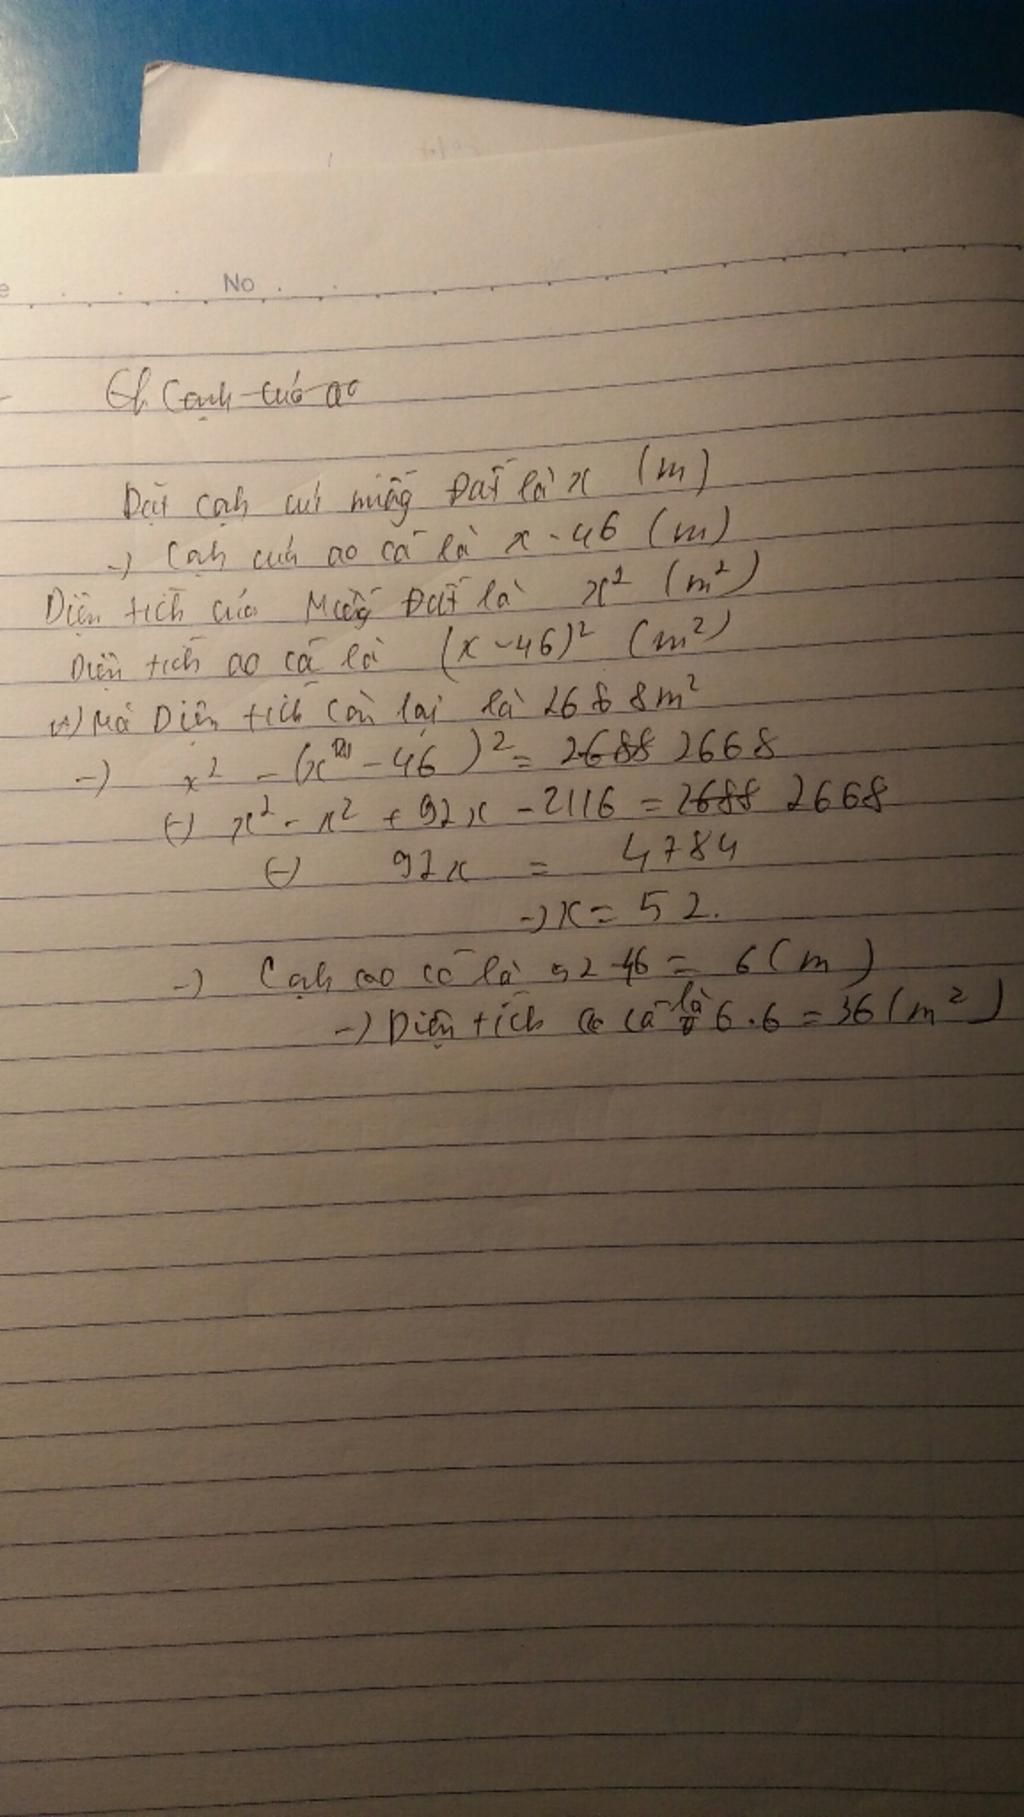 No
Cạnh của ao
Đặt cạnh củ miếng Đất là x (m)
-) Cạh củả ao cá là x - 46 (m)
Diện tích của Miếng Đất là x² (m²)
Diện tích ao cá là (x - 46)² (m²)
Mà Diện tích còn lại là 2668m²
-) x² - (x - 46)² = 2688 2668
(-) x² - x² + 92x - 2116 = 2688 2668
(-) 92x = 4784
-) x = 52.
-) Cạh ao cá là 52-46 = 6 (m)
-) Diện tích cá là 6.6 = 36 (m²)